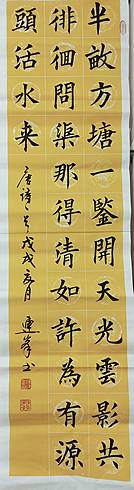 半畝方塘一鑒開天光雲影共
徘徊問渠那得清如許為有源
頭活水来
唐诗 戊戌 月 連峯书